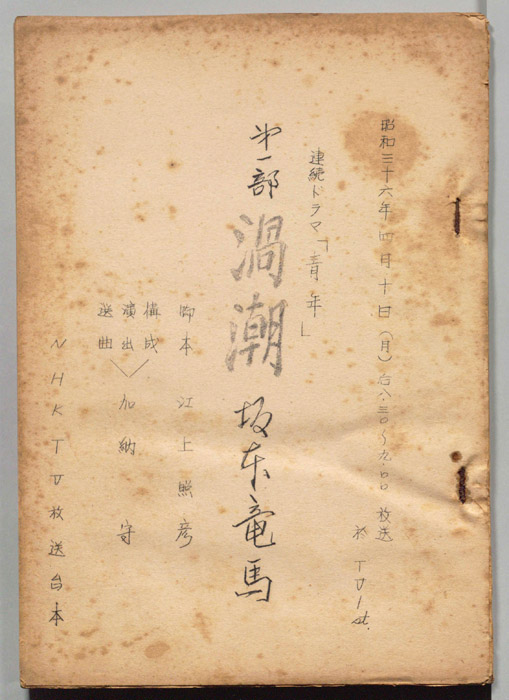 昭和三十六年四月十日（月）后八・三〇～九・〇〇 放送
於 TV1st.
連続ドラマ「青年」
第一部 渦潮 坂本竜馬
脚本 江上照彦
構成
演出 加納 守
選曲
NHK TV放送台本